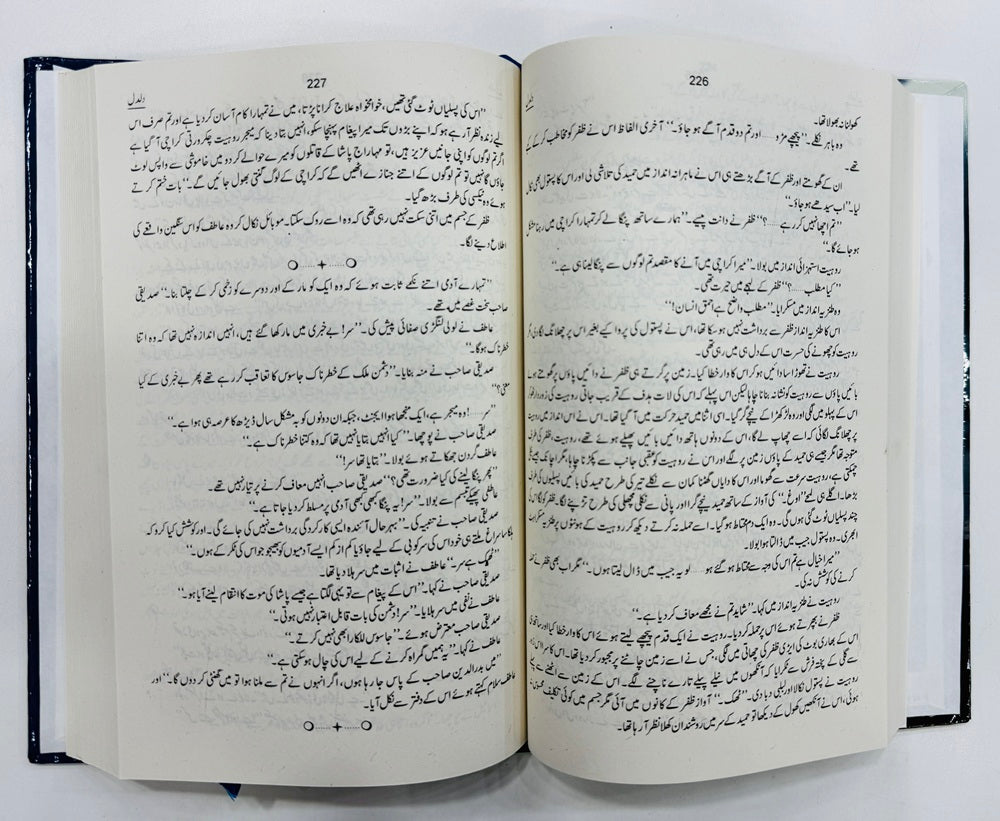 226
دلدل
کھولنا نہ بھولا تھا۔
وہ باہر نکلے۔ ”پیچھے مڑو ...... اور تم دو قدم آگے ہو جاؤ۔“ آخری الفاظ اس نے ظفر کو مخاطب کر کے کہے
تھے۔
ان کے گھومتے اور ظفر کے آگے بڑھتے ہی اس نے ماہرانہ انداز میں حمید کی تلاشی لی اور اس کا پستول بھی نکال
لیا۔ ”اب سیدھے ہو جاؤ۔“
”تم اچھا نہیں کر رہے ......؟“ ظفر نے دانت پیسے۔ ”ہمارے ساتھ پنگا لے کر تمہارا کراچی میں رہنا مشکل
ہو جائے گا۔“
روہیت استہزائی انداز میں بولا۔ ”میرا کراچی میں آنے کا مقصد تم لوگوں سے پنگا لینا ہی ہے۔“
”کیا مطلب ......؟“ ظفر کے لہجے میں حیرت تھی۔
وہ طنزیہ انداز میں مسکرایا۔ ”مطلب واضح ہے احمق انسان!“
اس کا طنزیہ انداز ظفر سے برداشت نہیں ہو سکا تھا، اس نے پستول کی پروا کیے بغیر اس پر چھلانگ لگا دی، مگر
روہیت کو چھونے کی حسرت اس کے دل ہی میں رہی تھی۔
روہیت نے تھوڑا سا دائیں ہو کر اس کا وار خطا کیا۔ زمین پر گرتے ہی ظفر نے دائیں پاؤں پر گھومتے ہوئے
بائیں پاؤں سے روہیت کو نشانہ بنانا چاہا لیکن اس پہلے کہ اس کی لات ہدف کے قریب جاتی روہیت کی زوردار ٹھوکر
اس کے پہلو میں لگی اور وہ لڑکھڑا کے نیچے گر گیا۔ اسی اثنا میں حمید حرکت میں آ گیا تھا۔ اس نے اس انداز میں روہیت
پر چھلانگ لگائی کہ اسے چھاپ لے گا، اس کے دونوں ہاتھ دائیں بائیں پھیلے ہوئے تھے، روہیت، ظفر کی طرف
متوجہ تھا مگر جیسے ہی حمید کے پاؤں زمین پر لگے اور اس نے روہیت کو عقبی جانب سے پکڑنا چاہا، مگر اچانک جیسے بجلی
چمکتی ہے، روہیت سرعت سے گھوما اور اس کا دایاں گھٹنا کمان سے نکلے تیر کی طرح حمید کی بائیں پسلیوں کی طرف
بڑھا۔ اگلے ہی لمحے ”اوغ۔“ کی آواز کے ساتھ حمید نیچے گرا اور پانی سے نکلی مچھلی کی طرح تڑپنے لگا۔ ظفر کو لگا اس کی
چند پسلیاں ٹوٹ گئی ہوں گی۔ وہ ایک دم محتاط ہو گیا۔ اسے حملہ نہ کرتے دیکھ کر روہیت کے ہونٹوں پر طنزیہ مسکراہٹ
ابھری۔ وہ پستول جیب میں ڈالتا ہوا بولا۔
”میرا خیال ہے تم اس کی وجہ سے محتاط ہو گئے ہو ...... لو یہ جیب میں ڈال لیتا ہوں۔“ مگر اب بھی ظفر نے حملہ
کرنے کی کوشش نہ کی۔
روہیت نے طنزیہ انداز میں کہا۔ ”شاید تم نے مجھے معاف کر دیا ہے۔“
ظفر نے بپھرتے ہوئے اس پر حملہ کر دیا۔ روہیت نے ایک قدم پیچھے لیتے ہوئے اس کا وار خطا کیا اور ساتھ ہی
اس کے بھاری بوٹ کی ایڑی ظفر کی چھاتی میں لگی، جس نے اسے زمین چاٹنے پر مجبور کر دیا تھا۔ اس کا سر اس زور
سے گلی کے پختہ فرش سے ٹکرایا کہ آنکھوں میں نیلے پیلے تارے ناچنے لگے۔ اس کے زمین سے اٹھنے سے پہلے
روہیت نے پستول نکالا اور لبلبی دبا دی۔ ”ٹھک۔“ آواز ظفر کے کانوں میں آئی مگر جسم میں کوئی تکلیف محسوس نہ
ہوئی، اس نے آنکھیں کھول کے دیکھا تو حمید کے سر میں روشندان کھلا نظر آ رہا تھا۔
227
دلدل
”اس کی پسلیاں ٹوٹ گئی تھیں، خوامخواہ علاج کرانا پڑتا، میں نے تمہارا کام آسان کر دیا ہے اور تم صرف اس
لیے زندہ نظر آ رہے ہو کہ اپنے بڑوں تک میرا پیغام پہنچا سکو، انہیں بتا دینا کہ میجر روہیت چکرورتی کراچی آ گیا ہے
اگر تم لوگوں کو اپنی جانیں عزیز ہیں، تو مہاراج پاشا کے قاتلوں کو میرے حوالے کر دو میں خاموشی سے واپس لوٹ
جاؤں گا نہیں تو تم لوگوں کے اتنے جنازے اٹھیں گے کہ کراچی کے لوگ گنتی بھول جائیں گے۔“ بات ختم کرتے
ہوئے وہ ٹیکسی کی طرف بڑھ گیا۔
ظفر کے جسم میں اتنی سکت نہیں رہی تھی کہ وہ اسے روک سکتا۔ موبائل نکال کر وہ عاطف کو اس سنگین واقعے کی
اطلاع دینے لگا۔
”تمہارے آدمی اتنے نکمے ثابت ہوئے کہ وہ ایک کو مار کے اور دوسرے کو زخمی کر کے چلتا بنا۔“ صدیقی
صاحب سخت غصے میں تھے۔
عاطف نے لولی لنگڑی صفائی پیش کی۔ ”سر! بے خبری میں مار کھا گئے ہیں، انہیں اندازہ نہیں تھا کہ وہ اتنا
خطرناک ہوگا۔“
صدیقی صاحب نے منہ بنایا۔ ”دشمن ملک کے خطرناک جاسوس کا تعاقب کر رہے تھے پھر بے خبری کے کیا
معنی؟“
”سر ......! وہ میجر ہے، ایک منجھا ہوا ایجنٹ، جبکہ ان دونوں کو بہ مشکل سال ڈیڑھ کا عرصہ ہی ہوا ہے۔“
صدیقی صاحب نے پوچھا۔ ”کیا انہیں بتایا نہیں تھا کہ وہ کتنا خطرناک ہے۔“
عاطف گردن جھکاتے ہوئے بولا۔ ”بتایا تھا سر!“
”پھر پنگا لینے کی کیا ضرورت تھی؟“ صدیقی صاحب انہیں معاف کرنے پر تیار نہیں تھے۔
عاطف پھیکے تبسم سے بولا۔ ”سر! یہ پنگا کبھی کبھی آدمی پر مسلط کر دیا جاتا ہے۔“
صدیقی صاحب نے تنبیہ کی۔ ”بہرحال آئندہ ایسی کارکردگی برداشت نہیں کی جائے گی۔ اور کوشش کیا کرو کہ
ہلکا سا سراغ ملتے ہی خود اس کی سرکوبی کے لیے جاؤ یا کم از کم ایسے آدمیوں کو بھیجو جو اس کی ٹکر کے ہوں۔“
”ٹھیک ہے سر۔“ عاطف نے اثبات میں سر ہلا دیا تھا۔
صدیقی صاحب نے کہا۔ ”اس کے پیغام سے تو یہی لگتا ہے جیسے پاشا کی موت کا انتقام لینے آیا ہو۔“
عاطف نے نفی میں سر ہلایا۔ ”سر! دشمن کی بات قابل اعتبار نہیں ہوتی۔“
صدیقی صاحب معترض ہوئے۔ ”جاسوس للکارا بھی نہیں کرتے۔“
عاطف نے کہا۔ ”یہ ہمیں گمراہ کرنے کے لیے اس کی چال ہو سکتی ہے۔“
”میں بدرالدین صاحب کے پاس جا رہا ہوں، اگر انہوں نے تم سے ملنا ہوا تو میں گھنٹی کر دوں گا۔“ اور
عاطف سلام کہتے ہوئے اس کے دفتر سے نکل آیا۔